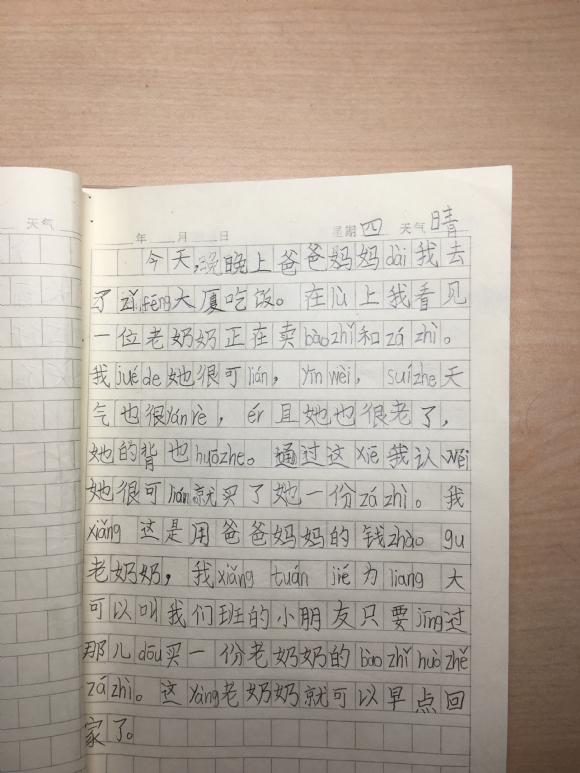 天气
年 月 日 星期四 天气晴
今天,晚晚上爸爸妈妈dài我去
了zǐfēng大厦吃饭。在lù上我看见
一位老奶奶正在卖bàozhǐ和zá zhì。
我jué de她很可lián，yīn wèi，suízhe天
气也很yánrè，ér且她也很老了，
她的背也huāzhe。通过这xiē我认wéi
她很可lián就买了她一份zá zhì。我
xiǎng这是用爸爸妈妈的钱zhào gu
老奶奶，我xiǎng tuán jié为liang大
可以叫我们班的小朋友只要jīng过
那儿dōu买一份老奶奶的bàozhǐ huò zhě
zázhì。这yàng老奶奶就可以早点回
家了。